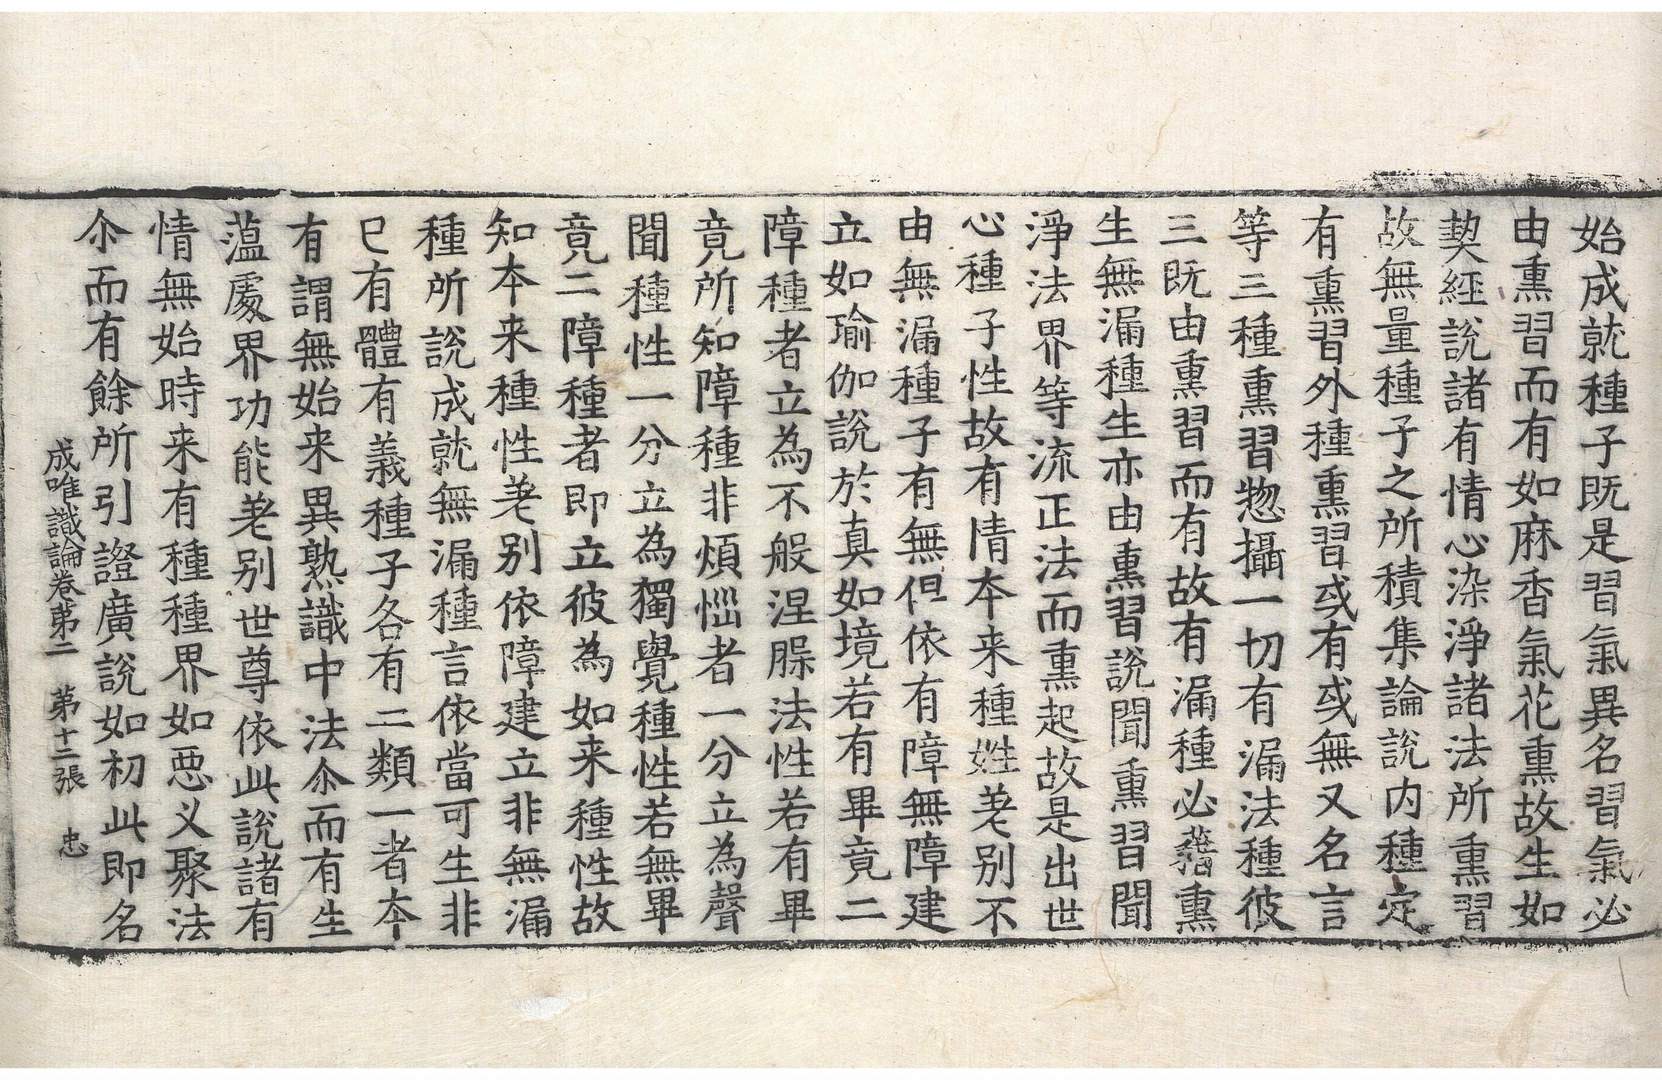 始成就種子既是習氣異名習氣必
由熏習而有如麻香氣花熏故生如
契經說諸有情心染淨諸法所熏習
故無量種子之所積集論說內種定
有熏習外種熏習或有或無又名言
等三種熏習惣攝一切有漏法種彼
三既由熏習而有故有漏種必藉熏
生無漏種生亦由熏習說聞熏習聞
淨法界等流正法而熏起故是出世
心種子性故有情本来種姓差别不
由無漏種子有無但依有障無障建
立如瑜伽說於真如境若有畢竟二
障種者立為不般涅槃法性若有畢
竟所知障種非煩惱者一分立為聲
聞種性一分立為獨覺種性若無畢
竟二障種者即立彼為如来種性故
知本来種性差别依障建立非無漏
種所說成就無漏種言依當可生非
已有體有義種子各有二類一者本
有謂無始来異熟識中法尒而有生
蘊處界功能差别世尊依此說諸有
情無始時来有種種界如惡叉聚法
尒而有餘所引證廣說如初此即名
成唯識論卷第二 第十二張 忠